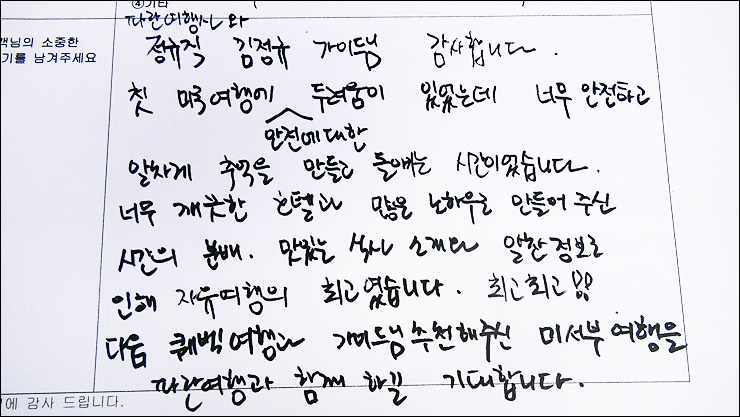 ④기타
객님의 소중한
기를 남겨주세요
파란여행사와
정규직 김정규 가이드님 감사합니다.
첫 미국여행에 두려움이 있었는데 너무 안전하고
안전에대한
알차게 추억을 만들고 돌아가는 시간이었습니다.
너무 깨끗한 호텔과 많은 노하우로 만들어 주신
시간의 분배. 맛있는 식사 소개와 알찬정보로
인해 자유여행의 최고였습니다. 최고최고!!
다음 퀘벡여행과 가이드님추천해주신 미서부여행을
파란여행과 함께 하길 기대합니다.
에 감사 드립니다.